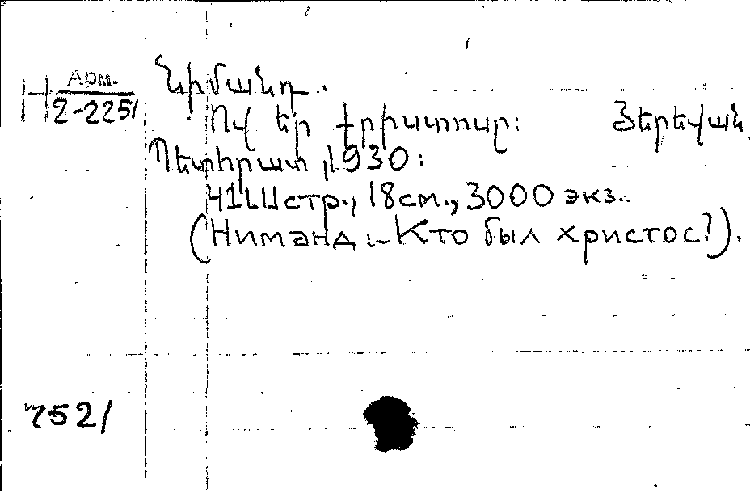 Арм.
Н 2-2251
Նիմանդ.
Ով եր Քրիստոսը: Յերեվան,
Պետհրատ, 1930:
41 стр., 18 см., 3000 экз.
(Ниманд - Кто был христос?).
7521